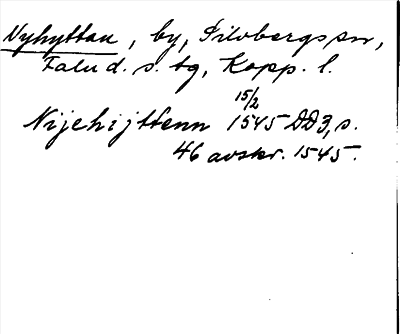 Nyhyttan, by, Silvbergs sn,
Falu d. s. tg, Kopp. l.
15/2
Nijehijttenn 1545 DD3, s.
46 avskr. 1545.